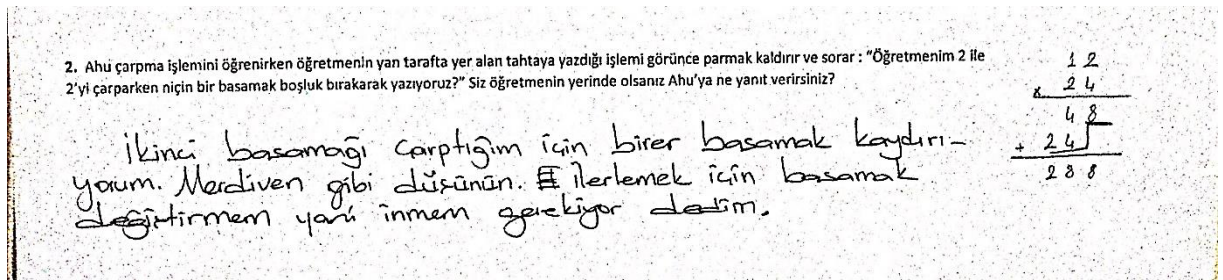 2. Ahu çarpma işlemini öğrenirken öğretmenin yan tarafta yer alan tahtaya yazdığı işlemi görünce parmak kaldırır ve sorar : "Öğretmenim 2 ile
2'yi çarparken niçin bir basamak boşluk bırakarak yazıyoruz?" Siz öğretmenin yerinde olsanız Ahu'ya ne yanıt verirsiniz?
12
x 24
48
+ 24
288
İkinci basamağı çarptığım için birer basamak kaydırı-
yorum. Merdiven gibi düşünün. ilerlemek için basamak
değiştirmem yani inmem gerekiyor dedim.